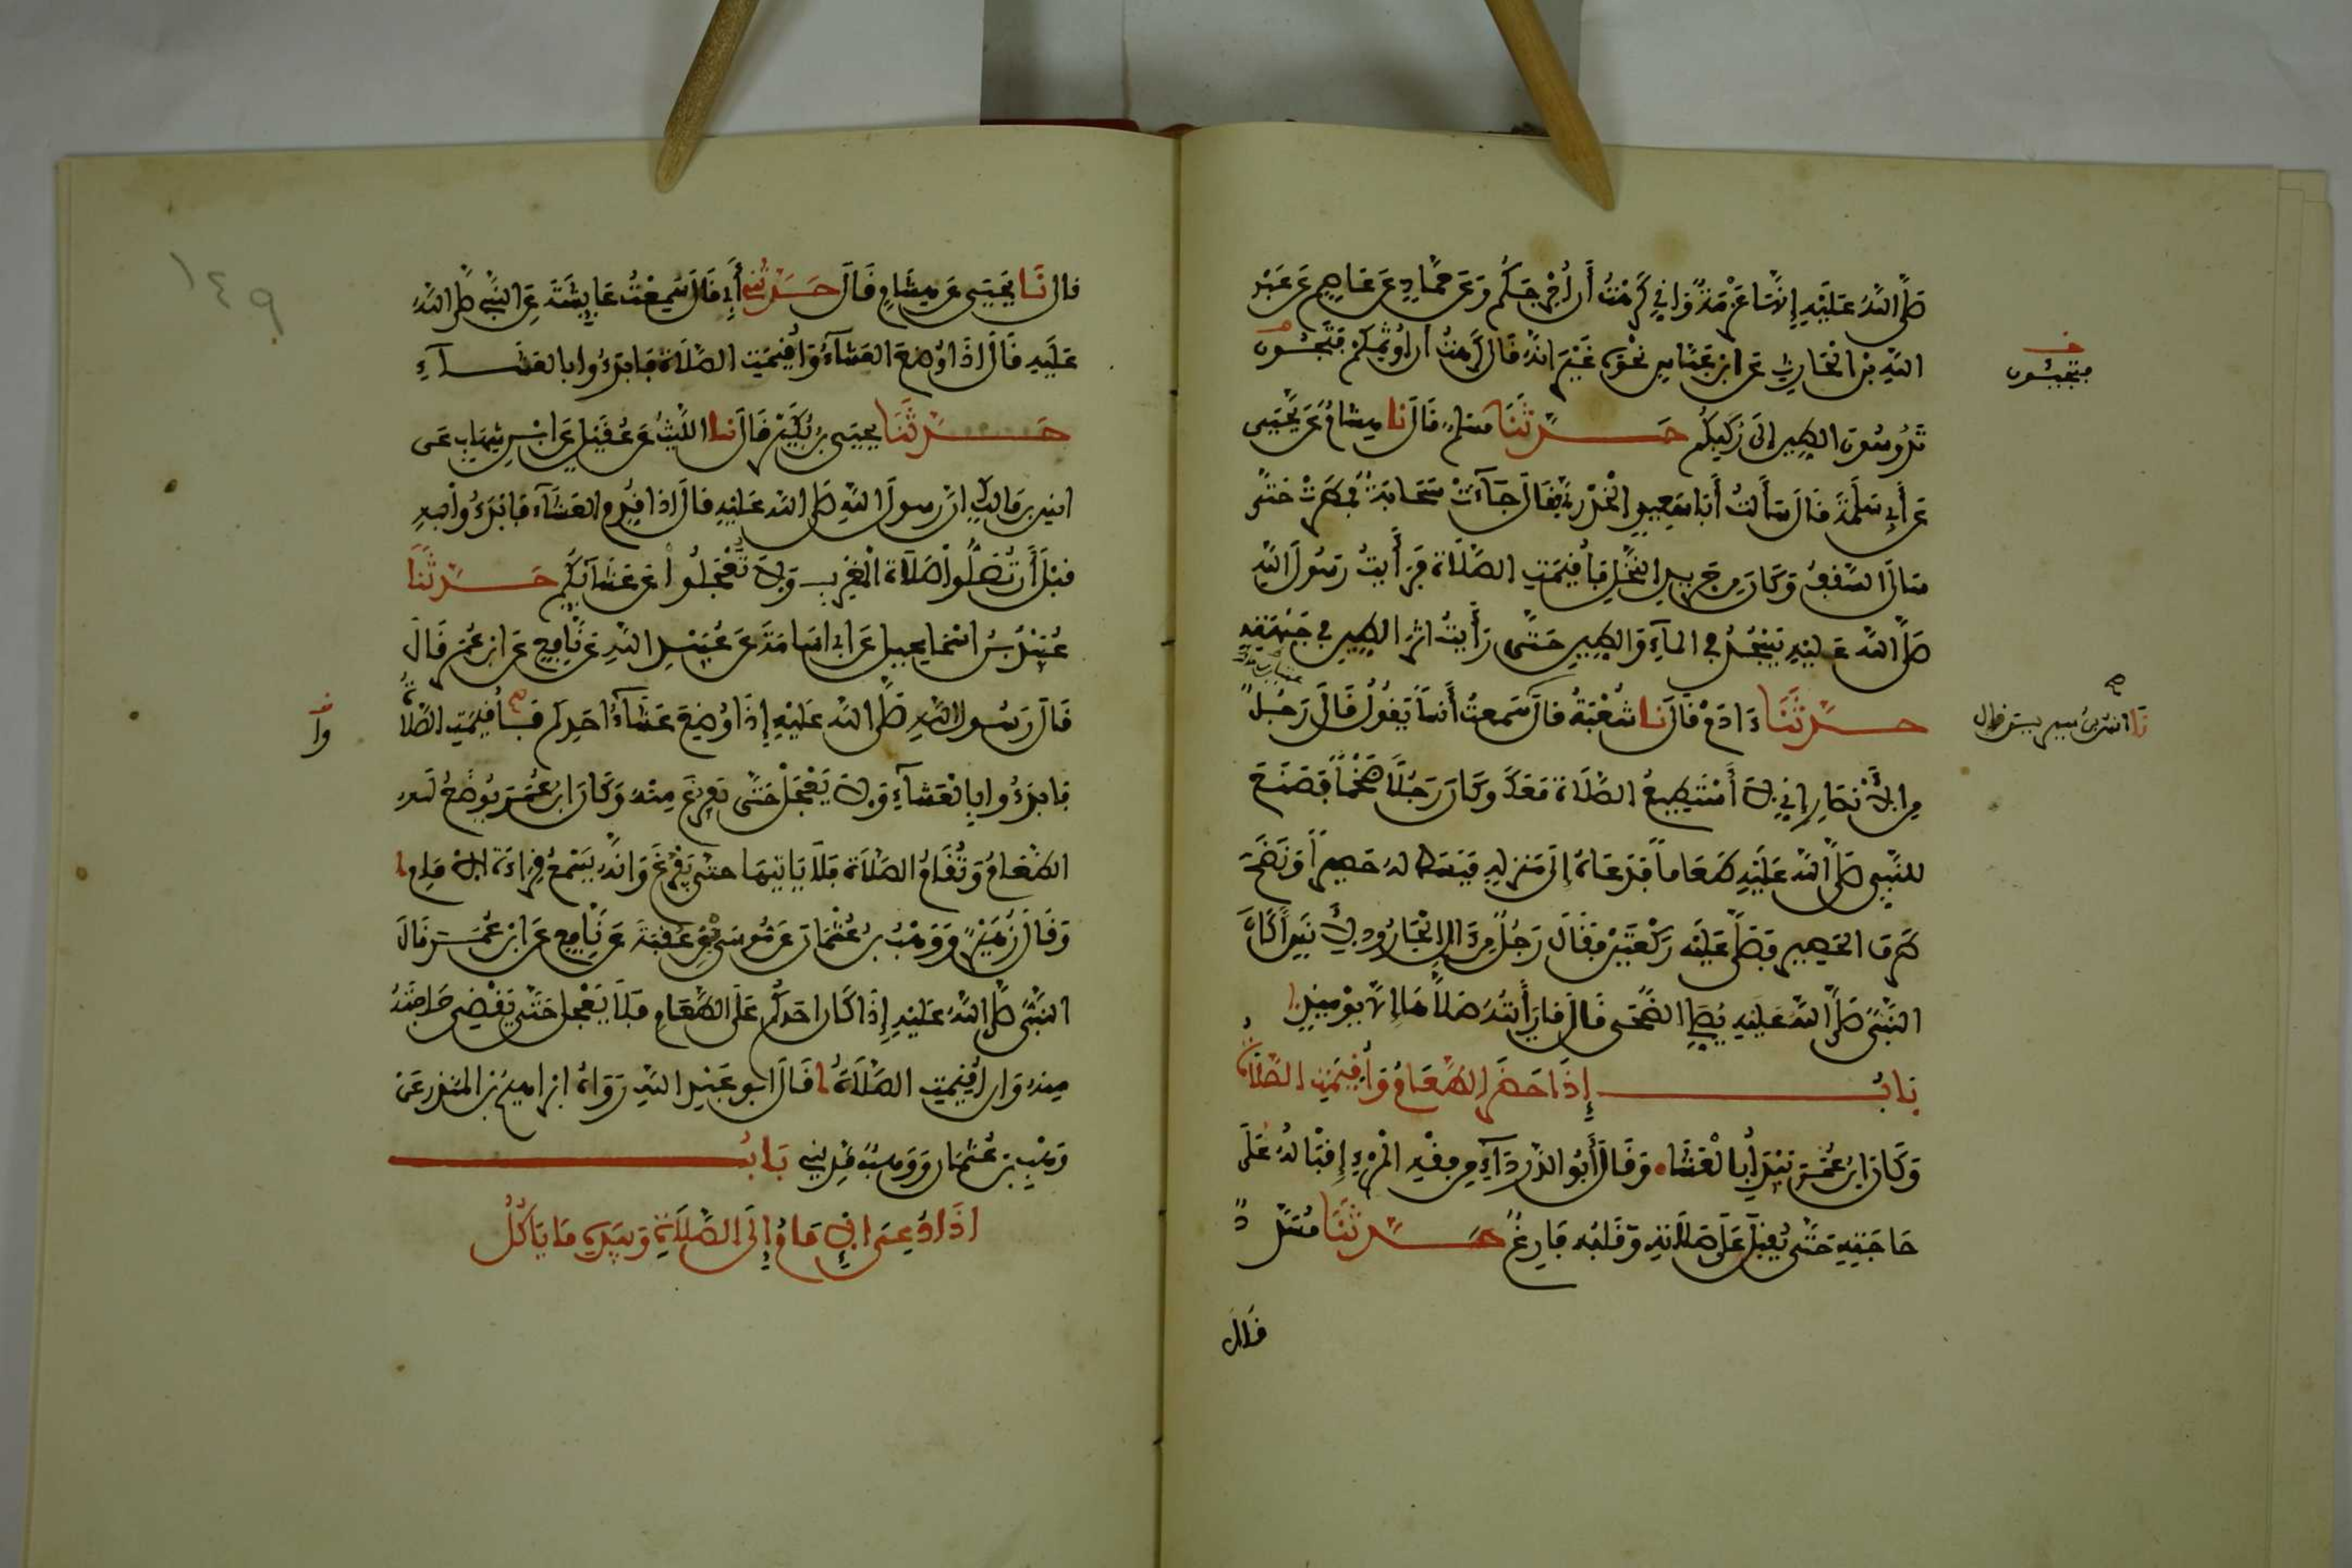 صَلَّى اللهُ عَلَيْهِ إِنَّهَا عَزْمَةٌ وَإِنِّي كَرِهْتُ أَنْ أُخْرِجَكُمْ وَعَنْ حَمَّادٍ عَنْ عَاصِمٍ عَنْ عَبْدِ
اللهِ بْنِ الْحَارِثِ عَنِ ابْنِ عَبَّاسٍ نَحْوَهُ غَيْرَ أَنَّهُ قَالَ كَرِهْتُ أَنْ أُوَثِّمَكُمْ فَتَجِيئُونَ
فتجيئون
تَدُوسُونَ الطِّينَ إِلَى رُكَبِكُمْ حَدَّثَنَا مُسْلِمٌ قَالَ نا هِشَامٌ عَنْ يَحْيَى
عَنْ أَبِي سَلَمَةَ قَالَ سَأَلْتُ أَبَا سَعِيدٍ الْخُدْرِيَّ فَقَالَ جَاءَتْ سَحَابَةٌ فَمَطَرَتْ حَتَّى
سَالَ السَّقْفُ وَكَانَ مِنْ جَرِيدِ النَّخْلِ فَأُقِيمَتِ الصَّلَاةُ فَرَأَيْتُ رَسُولَ اللهِ
صَلَّى اللهُ عَلَيْهِ يَسْجُدُ فِي الْمَاءِ وَالطِّينِ حَتَّى رَأَيْتُ أَثَرَ الطِّينِ فِي جَبْهَتِهِ
حَدَّثَنَا ءَادَمُ قَالَ نا شُعْبَةُ قَالَ سَمِعْتُ أَنَساً يَقُولُ قَالَ رَجُلٌ
نا انس بن سيرين قال
مِنَ الْأَنْصَارِ إِنِّي لَا أَسْتَطِيعُ الصَّلَاةَ مَعَكَ وَكَانَ رَجُلًا ضَخْماً فَصَنَعَ
لِلنَّبِيِّ صَلَّى اللهُ عَلَيْهِ طَعَاماً فَدَعَاهُ إِلَى مَنْزِلِهِ فَبَسَطَ لَهُ حَصِيراً وَنَضَحَ
طَرَفَ الْحَصِيرِ فَصَلَّى عَلَيْهِ رَكْعَتَيْنِ فَقَالَ رَجُلٌ مِنْ ءَالِ الْجَارُودِ لِأَنَسٍ أَكَانَ
النَّبِيُّ صَلَّى اللهُ عَلَيْهِ يُصَلِّي الضُّحَى قَالَ مَا رَأَيْتُهُ صَلَّاهَا إِلَّا يَوْمَئِذٍ
بَابُ إِذَا حَضَرَ الطَّعَامُ وَأُقِيمَتِ الصَّلَاةُ
وَكَانَ ابْنُ عُمَرَ يَبْدَأُ بِالْعَشَاءِ وَقَالَ أَبُو الدَّرْدَاءِ مِنْ فِقْهِ الْمَرْءِ إِقْبَالُهُ عَلَى
حَاجَتِهِ حَتَّى يُقْبِلَ عَلَى صَلَاتِهِ وَقَلْبُهُ فَارِغٌ حَدَّثَنَا مُسَدَّدٌ
قال
١٤٩
قال نَا يَحْيَى عَنْ هِشَامٍ قَالَ حَدَّثَنِي أَبِي قَالَ سَمِعْتُ عَائِشَةَ عَنِ النَّبِيِّ صَلَّى اللهُ
عَلَيْهِ قَالَ إِذَا وُضِعَ الْعَشَاءُ وَأُقِيمَتِ الصَّلَاةُ فَابْدَءُوا بِالْعَشَاءِ
حَدَّثَنَا يَحْيَى بْنُ بُكَيْرٍ قَالَ نا اللَّيْثُ عَنْ عُقَيْلٍ عَنِ ابْنِ شِهَابٍ عَنْ
أنس بن مالك أن رسول الله صلى الله عليه قال إذا قدم العشاء فابدءوا به
قَبْلَ أَنْ تُصَلُّوا صَلَاةَ الْمَغْرِبِ وَلَا تَعْجَلُوا عَنْ عَشَائِكُمْ حَدَّثَنَا
عُبَيْدُ بْنُ إِسْمَاعِيلَ عَنْ أَبِي أُسَامَةَ عَنْ عُبَيْدِ اللهِ عَنْ نَافِعٍ عَنِ ابْنِ عُمَرَ قَالَ
قَالَ رَسُولُ اللهِ صَلَّى اللهُ عَلَيْهِ إِذَا وُضِعَ عَشَاءُ أَحَدِكُمْ فَأُقِيمَتِ الصَّلَاةُ
وأ
فَابْدَءُوا بِالْعَشَاءِ وَلَا يَعْجَلْ حَتَّى يَفْرُغَ مِنْهُ وَكَانَ ابْنُ عُمَرَ يُوضَعُ لَهُ
الطَّعَامُ وَتُقَامُ الصَّلَاةُ فَلَا يَأْتِيهَا حَتَّى يَفْرُغَ وَإِنَّهُ يَسْمَعُ قِرَاءَةَ الْإِمَامِ
وَقَالَ زُهَيْرٌ وَوَهْبُ بْنُ عُثْمَانَ عَنْ مُوسَى بْنِ عُقْبَةَ عَنْ نَافِعٍ عَنِ ابْنِ عُمَرَ قَالَ
النَّبِيُّ صَلَّى اللهُ عَلَيْهِ إِذَا كَانَ أَحَدُكُمْ عَلَى الطَّعَامِ فَلَا يَعْجَلْ حَتَّى يَقْضِيَ حَاجَتَهُ
مِنْهُ وَإِنْ أُقِيمَتِ الصَّلَاةُ قَالَ أَبُو عَبْدِ اللهِ رَوَاهُ إِبْرَاهِيمُ بْنُ الْمُنْذِرِ عَنْ
وَهْبِ بْنِ عُثْمَانَ وَوَهْبٌ مَدَنِيٌّ بَابُ
إِذَا دُعِيَ الْإِمَامُ إِلَى الصَّلَاةِ وَبِيَدِهِ مَا يَأْكُلُ